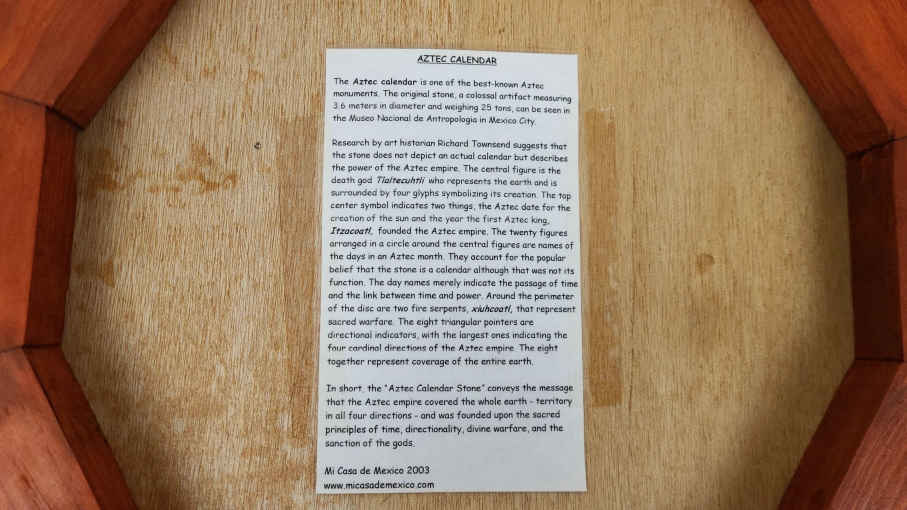 AZTEC CALENDAR
The Aztec calendar is one of the best-known Aztec
monuments. The original stone, a colossal artifact measuring
3.6 meters in diameter and weighing 25 tons, can be seen in
the Museo Nacional de Antropologia in Mexico City.
Research by art historian Richard Townsend suggests that
the stone does not depict an actual calendar but describes
the power of the Aztec empire. The central figure is the
death god Tlaltecuhtli who represents the earth and is
surrounded by four glyphs symbolizing its creation. The top
center symbol indicates two things, the Aztec date for the
creation of the sun and the year the first Aztec king,
Itzacoatl, founded the Aztec empire. The twenty figures
arranged in a circle around the central figures are names of
the days in an Aztec month. They account for the popular
belief that the stone is a calendar although that was not its
function. The day names merely indicate the passage of time
and the link between time and power. Around the perimeter
of the disc are two fire serpents, xiuhcoatl, that represent
sacred warfare. The eight triangular pointers are
directional indicators, with the largest ones indicating the
four cardinal directions of the Aztec empire. The eight
together represent coverage of the entire earth.
In short, the "Aztec Calendar Stone" conveys the message
that the Aztec empire covered the whole earth - territory
in all four directions - and was founded upon the sacred
principles of time, directionality, divine warfare, and the
sanction of the gods.
Mi Casa de Mexico 2003
www.micasademexico.com